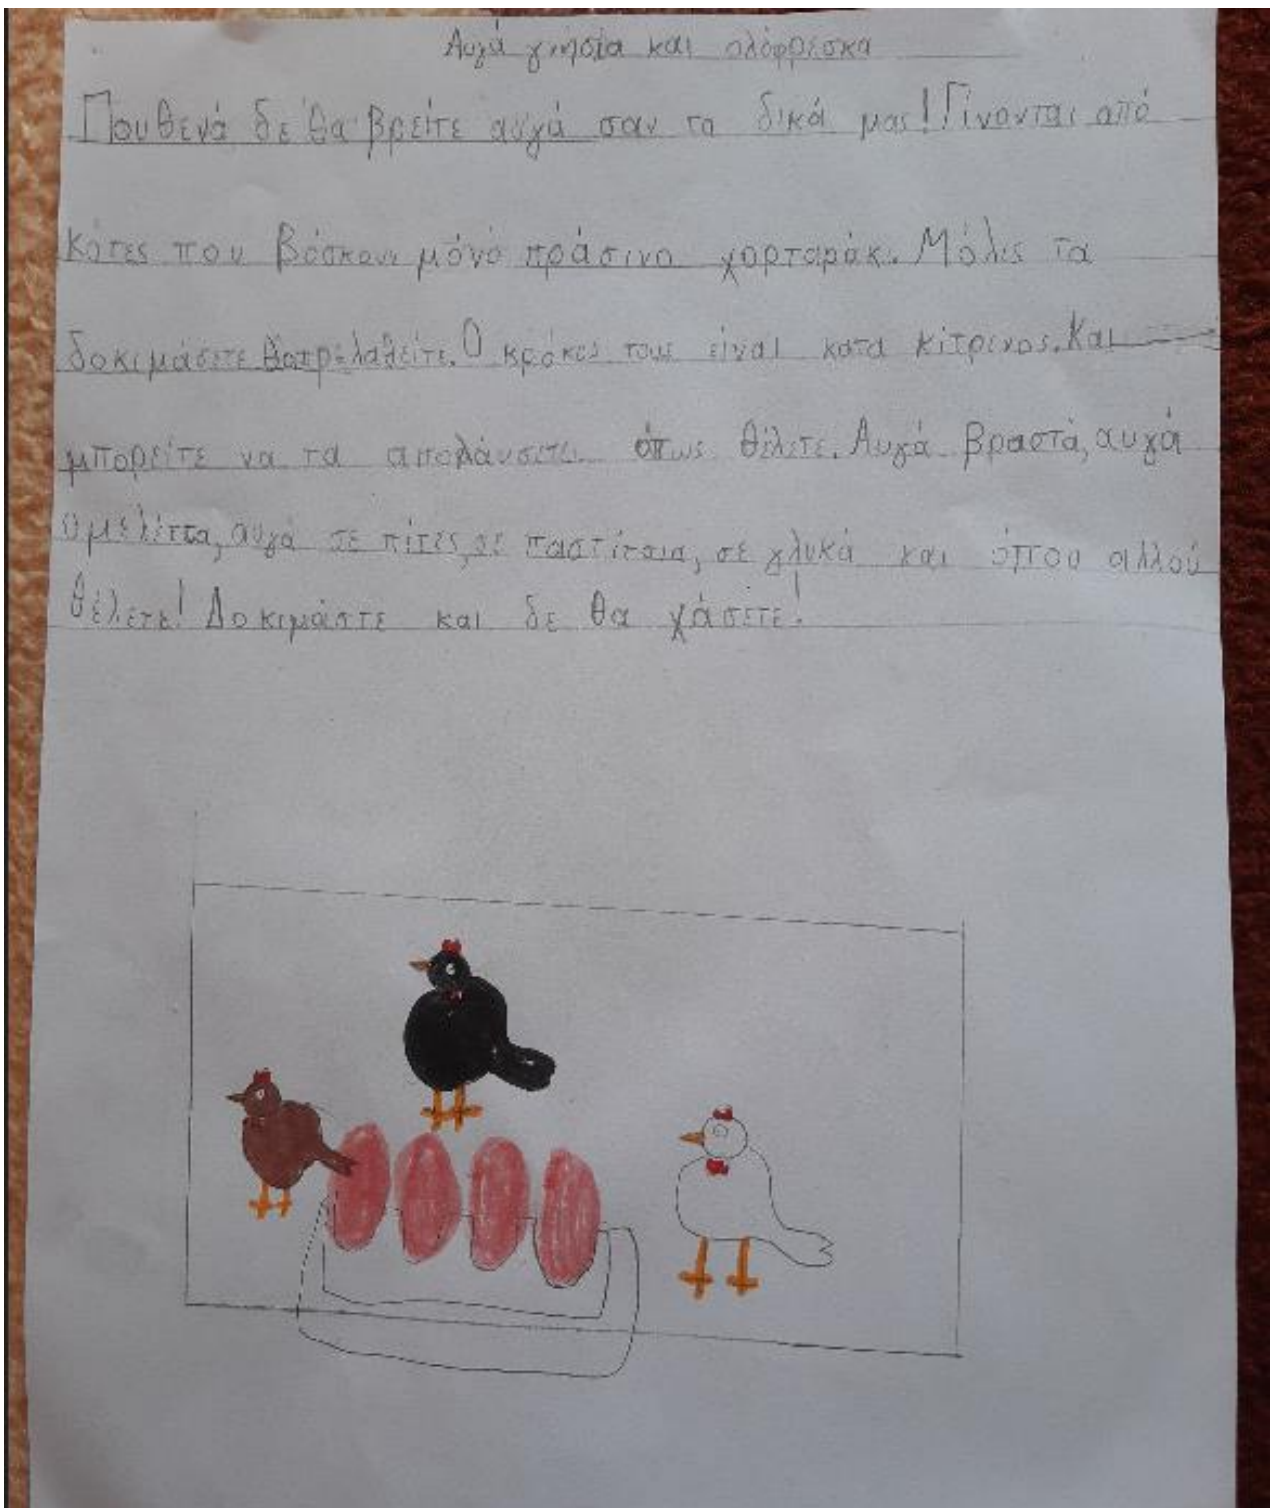 Αυγά γνήσια και ολόφρεσκα
Πουθενά δε θα βρείτε αυγά σαν τα δικά μας! Γίνονται από
κότες που βόσκουν μόνο πράσινο χορταράκ. Μόλις τα
δοκιμάσετε θα τρελαθείτε. Ο κρόκος τους είναι κατα κίτρινος. Και
μπορείτε να τα απολάυσετε όπως θέλετε. Αυγά βραστά, αυγά
ομελέττα, αυγά σε πίτες, σε παστίτσια, σε γλυκά και όπου αλλού
θέλετε! Δοκιμάστε και δε θα χάσετε!